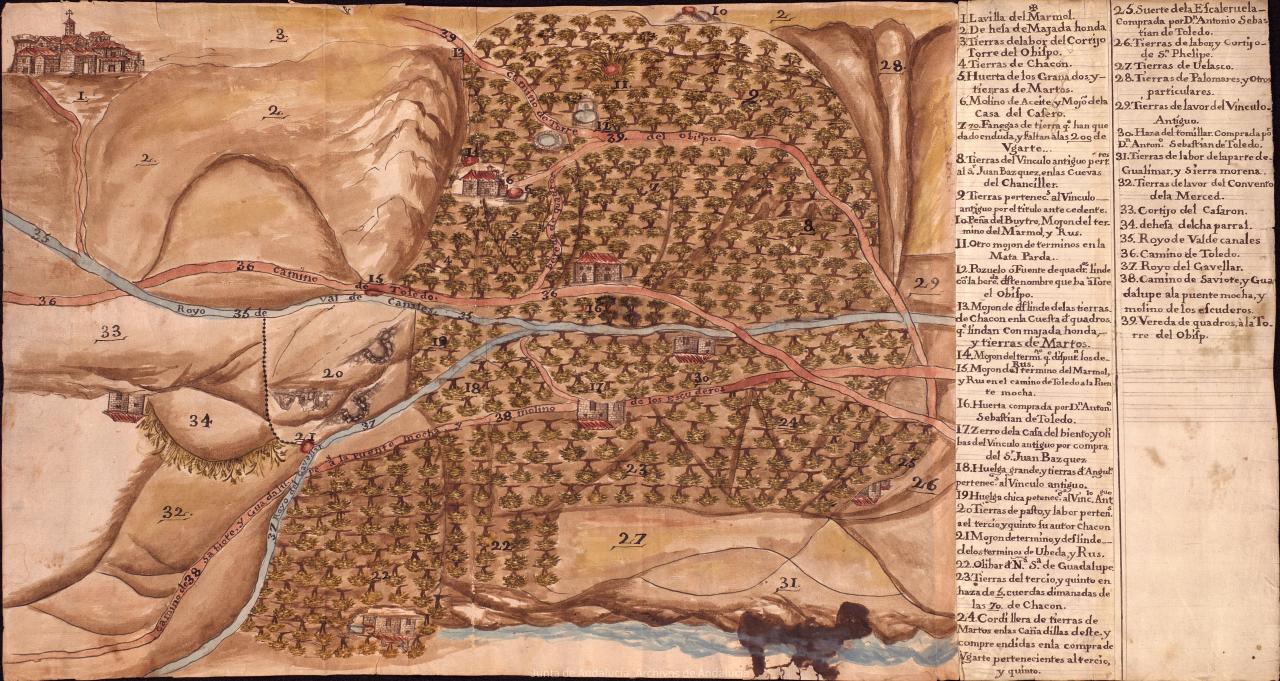 1. La villa del Marmol.
2. Dehesa de Majada honda
3. Tierras de labor del Cortijo
Torre del Obispo.
4. Tierras de Chacon.
5. Huerta de los Granados, y
tierras de Martos.
6. Molino de Aceite, y Mojõ dela
Casa del Casero.
7. 70. Fanegas de tierra q.e han que
dado en duda, y faltan a las 209 de
Vgarte...
8. Tierras del Vinculo antiguo pert.
al S.r Juan Bazquez, en las Cuevas
del Chanciller.
9. Tierras pertenec.s al Vinculo
antiguo por el titulo antecedente.
10. Peña del Buytre, Mojon del ter
mino del Marmol, y Rus.
11. Otro mojon de terminos en la
Mata Parda..
12. Pozuelo ó Fuente de quadr.s linde
el Obispo.
13. Mojon de deslinde delas tierras
de Chacon en la Cuesta d quadros,
q.e lindan con majada honda,
y tierras de Martos.
14. Mojon del term.o q.e disput. los de
Rus.
15. Mojon del termino del Marmol,
y Rus en el camino de Toledo a la Puen
te mocha.
16. Huerta comprada por D.n Anton.
Sebastian de Toledo.
17. Zerro dela Casa del biento, y oli
bas del Vinculo antiguo por compra
del S.r Juan Bazquez
18. Huelga grande, y tierras d Angul.
pertenec.s al Vinculo antiguo.
19. Huelga chica
20. Tierras de pasto, y labor perten.s
a el tercio, y quinto su autor Chacon
21. Mojon de termino y deslinde
delos terminos de Ubeda, y Rus.
22. Olibar d N.a S.a de Guadalupe
23. Tierras del tercio, y quinto en
haza de 5. cuerdas dimanadas de
las 70. de Chacon.
24. Cordillera de tierras de
Martos en las Cañadillas deste, y
comprendidas en la compra de
Vgarte pertenecientes al tercio,
y quinto.
25. Suerte dela Escaleruela
Comprada por D.n Antonio Sebas
tian de Toledo.
26. Tierras de labor, y Cortijo
de S.n Phelipe.
27. Tierras de Uelasco.
28. Tierras de Palomares, y Otros
particulares.
29. Tierras de lavor del Vinculo
Antiguo.
30. Haza del tomillar. Comprada põ
D.n Anton. Sebastian de Toledo.
31. Tierras de labor de la parte de
Gualimar, y Sierra morena.
32. Tierras de lavor del Convento
dela Merced.
33. Cortijo del Casaron.
34. dehesa del chaparral.
35. Royo de Val de canales
36. Camino de Toledo.
37. Royo del Gavellar.
38. Camino de Saviote, y Gua
dalupe a la puente mocha, y
molino de los escuderos.
39. Vereda de quadros, à la To
rre del Obisp.
1.
2.
2.
2.
3.
10
39
13
camino de torre
39. del obispo
11
12
9
28
14
6
7
8
4
29
35
36
36 camino de Toledo.
15
36
Royo 35 de Val de Canales 35
16
33
20
19
18
17
30
34
21
37
38 molino de los escuderos
24
a la Puente mocha y
23
25
26
32
37 Royo del Gavellar
Camino de 38 Sabiote, y Guadalupe
22
22
27
31
Junta de Andalucía. Archivos de Andalucía